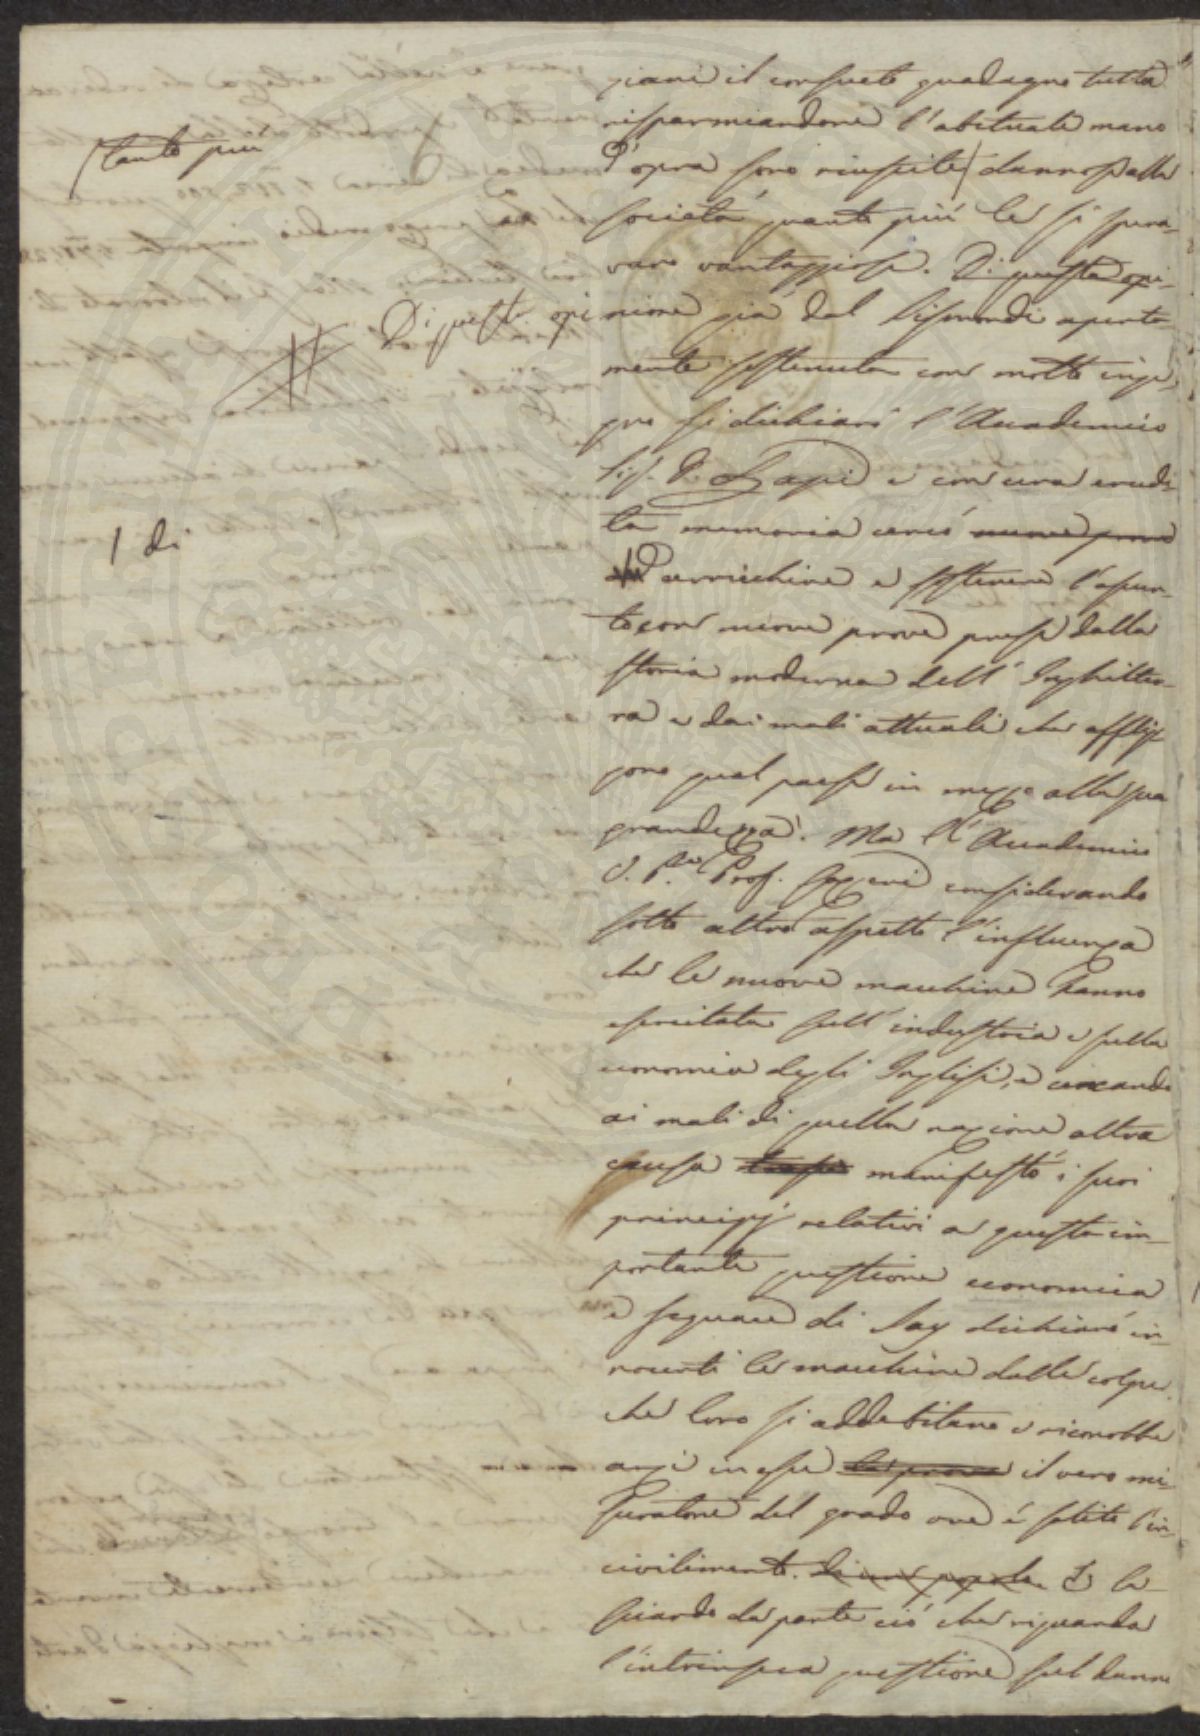 giani il consueto guadagno tutta
risparmiandone l'abituale mano
/tanto più
d'opra sono riuscite/ dannose alla
società quanto più le si spera-
vano vantaggiose. Di questa opi-
# Di questa opinione già dal Sismondi aperta-
mente sostenuta con molto inge-
gno si dichiarò l'Accademico
Sig. D. Lapi e con una erudi-
ta memoria cercò nuove prove
/ di
arricchire e sostenere l'assun-
to con nuove prove prese dalla
storia moderna dell'Inghilter-
ra e dai mali attuali che afflig-
gono quel paese in mezzo alla sua
grandezza. Ma l'Accademico
Prof. considerando
sotto altro aspetto l'influenza
che le nuove macchine hanno
esercitata sull'industria e sulla
economia degli Inglesi, e cercando
ai mali di quella nazione altra
causa manifestò i suoi
principj relativi a questa im-
portante questione economica
e seguace di Say dichiarò in-
nocenti le macchine dalle colpe
che loro si addebitano e riconobbe
anzi in esse le prove il vero mi-
suratore del grado ove è salito l'in-
civilimento. di un popolo. E la-
sciando da parte ciò che riguarda
l'intrinseca questione sul danno